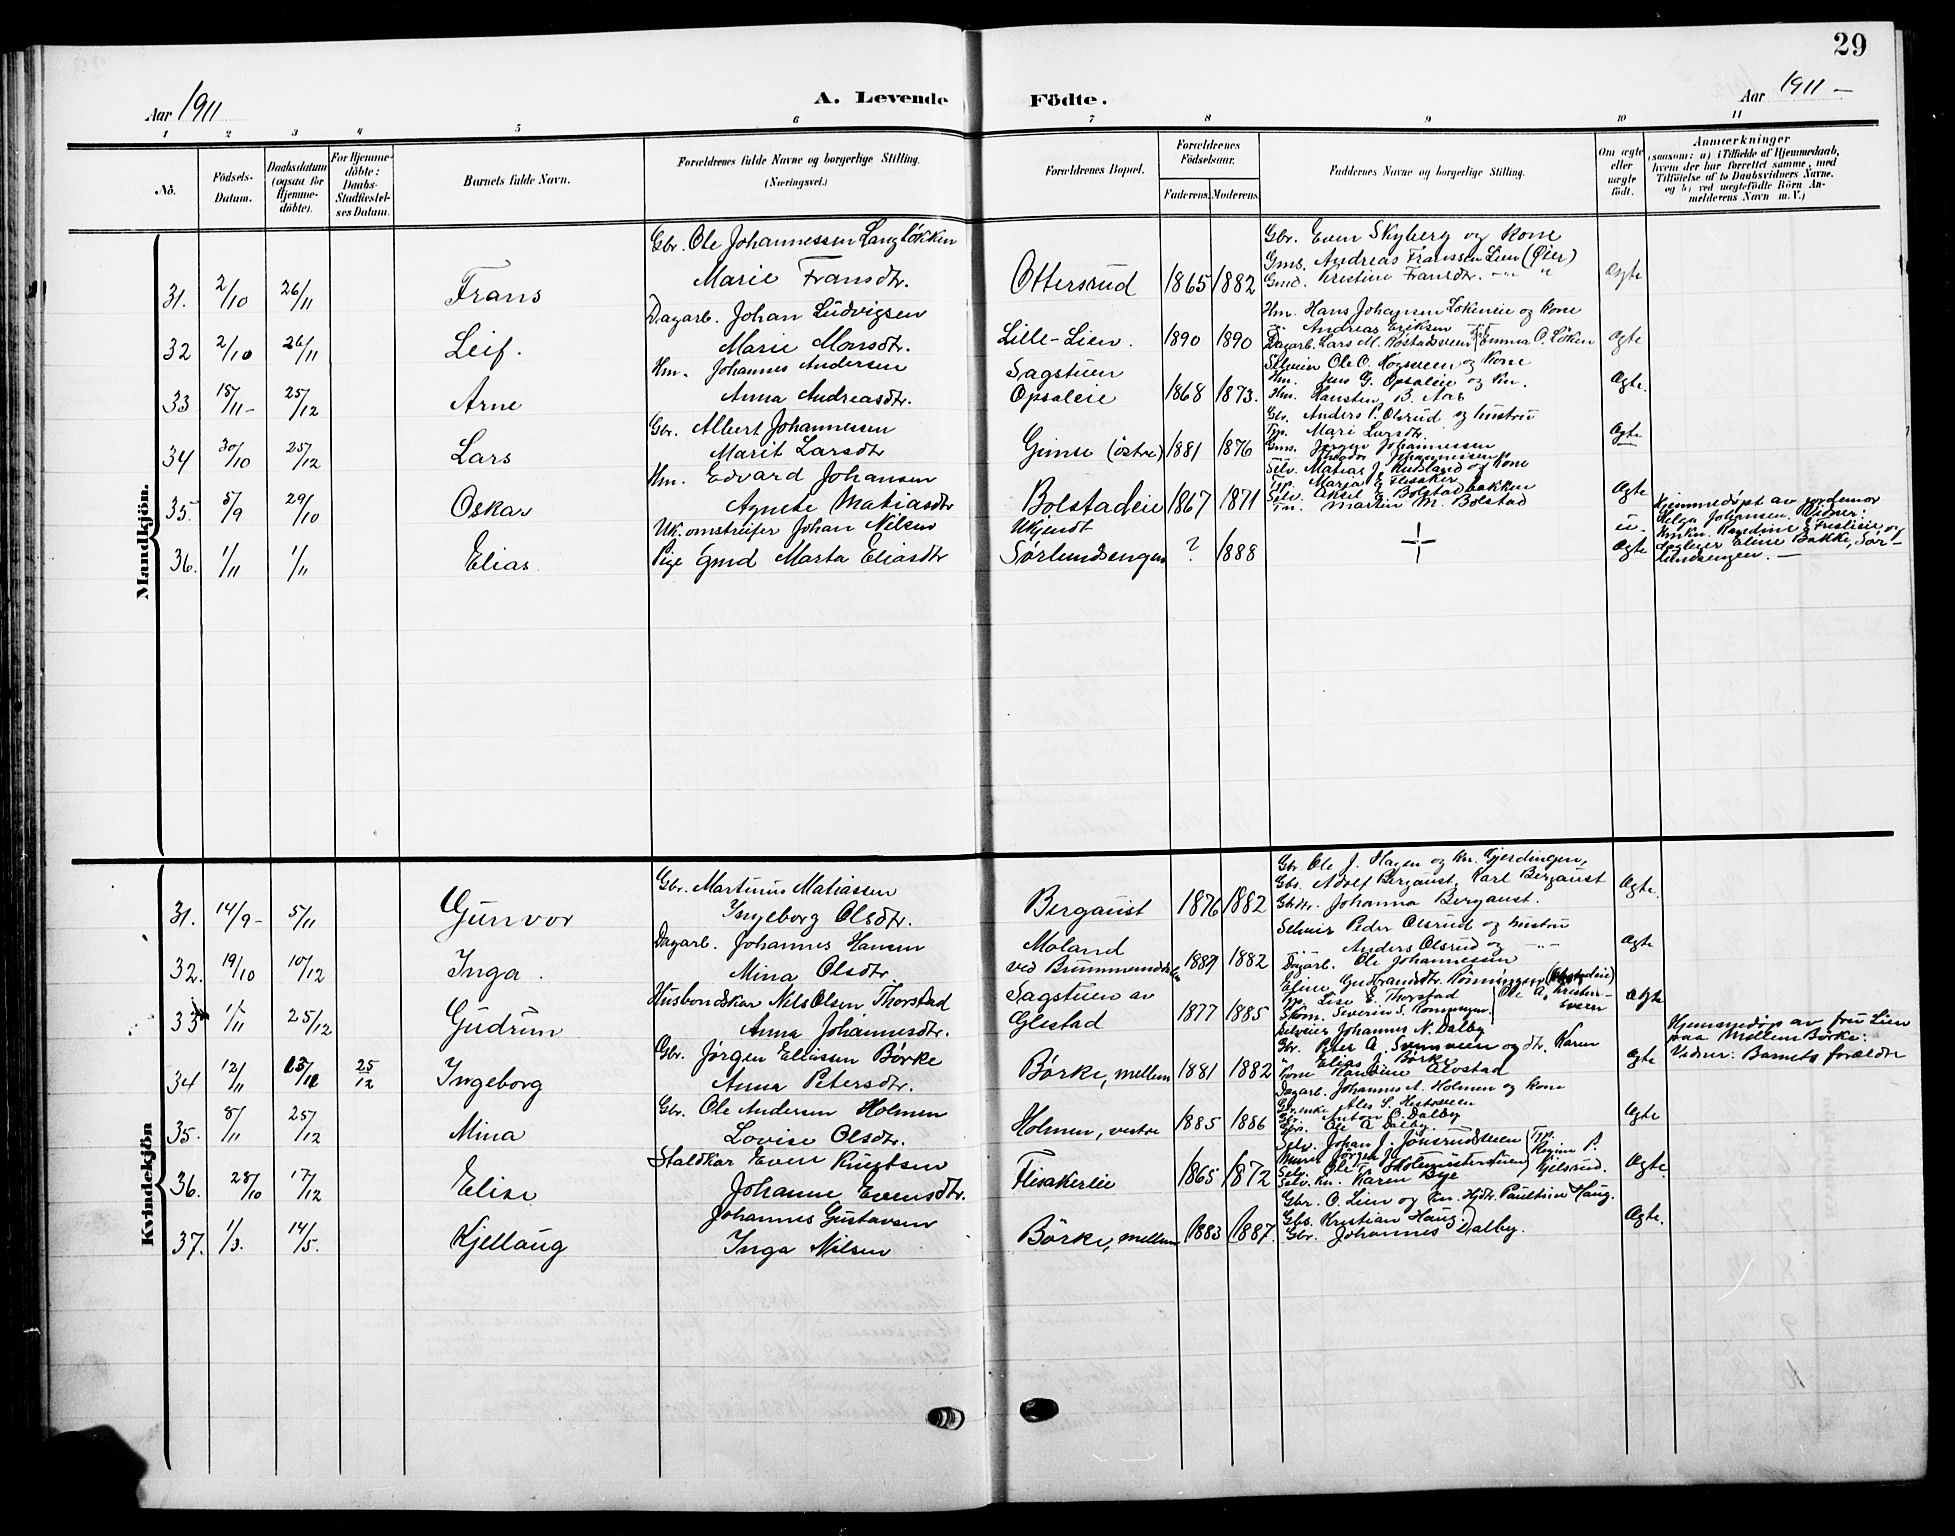 29
Aar 1911
A. Levende Födte.
Aar 1911 —
1 2 3 4 5 6 7 8 9 10 11
No.
Födsels-Datum.
Daabsdatum (ogsaa for Hjemme-döbte).
For Hjemme-döbte: Daabs-Stadfæstel-ses Datum.
Barnets fulde Navn.
Forældrenes fulde Navne og borgerlige Stilling. (Næringsvei.)
Forældrenes Bopæl.
Forældrenes Födselsaar.
Faderens. Moderens.
Faddernes Navne og borgerlige Stilling.
Om ægte eller uægte födt.
Anmærkninger
(saasom: a) i Tilfælde af Hjemmedaab,
hvem der har forrettet samme, med
Tilföielse af to Daabsvidners Navne.
og b) ved uægtefödte Börn An-
melderens Navn m. V.)
Mandkjön.
Gbr. Ole Johannessen Langløkken
Gbr. Even Skyberg og Kone
31. 2/10 26/11 Frans Marie Fransdtr. Ottersrud 1865 1882 Ægte
Gms. Andreas Franssen Lien (Øier)
Gmd. Kristine Fransdtr. — " — "
Dagarb. Johan Ludvigsen
Hm. Hans Johansen Løkeneie og Kone
32 2/10 26/11 Leif. Marie Monsdtr. Lille-Lien. 1890 1890 Ægte
Andreas Eriksen
Dagarb. Lars M. Rostadsveen Emma O. Løken
Hm. Johannes Andersen
Sagstuen
Selveier Ole O. Høgsveen og Kone
33 15/11 — 25/12 Arne Anna Andreasdtr. Opsaleie 1868 1873. Ægte.
Hm. Jens G. Opsaleie og Kn.
Hm. Karsten B. Aas
Gbr. Albert Johannessen
Gbr. Anders P. Olsrud og hustru
34 30/10 25/12 Lars Marit Larsdtr Gimse (østre) 1881 1876 Ægte
Tp. Mari Larsdtr.
Gms. Jørgen Johannessen
Theodor Johannessen
Hm. Edvard Johansen
Selv. Matias J. Rudsland og Kone
35. 5/9 29/10 Oskar Agnete Matiasdtr Bolstadeie 1867 1871 Ægte
Tp. Marja E. Flesaker
Selv. Aksel E. Bolstadbakken
Tn. Martin M. Bolstad
Uk. omstreifer Johan Nilsen Ukjendt u.
36. 1/11 1/11 Elias. Pige gmd Marta Eliasdtr Sørlundsengen ? 1888 + Ægte
Hjemmedøpt av jordemor
Helga Johansen. Vidner:
Kmkn. Karoline E. Fruslieie og
Jogleier Eline Bakke, Sør-
lundsengen. —
Kvindekjön
Gbr. Martinus Matiassen
Gbr. Ole J. Hagen og Kn. Gjerdingen,
31. 14/9 — 5/11 Gunvor Ingeborg Olsdtr. Bergaust 1876 1882 Ægte.
Gbs. Adolf Bergaust, Karl Bergaust
Gbdtr. Johanna Bergaust.
Dagarb. Johannes Hansen
Moland
Selveier Peder Olsrud og hustru
32. 19/10 10/12 Inga. Mina Olsdtr. 1889 1882 Ægte
Anders Olsrud og — " —
Dagarb. Ole Johannessen
Husbondskar Nils Olsen Thorstad
Sagstuen av
Eline Gudbrandsdtr.
33 1/11 25/12 Gudrun Anna Johannesdtr. Glestad 1877 1885 Ægte
Tp. Lise E. Thorstad
Selveier Johannes N. Dalby
Gbr. Jørgen Eliassen Børke
Gbr. Peter A. Svenveien og dtr. Karen
34 12/11 25/12 Ingeborg Anna Petersdtr. Børke, mellem 1881 1882 Ægte
Elias J. Børke
Dagarb. Johannes A. Holmen og Kone
Hjemmedøp av fru Lien
paa Mellem Børke:
Vidner: Barnets forældre
Gbr. Ole Andersen Holmen
35. 8/11 25/12 Mina Lovise Olsdtr. Holmen, vestre 1885 1886 Ægte
Gbr. Anton O. Dalby
Gbs. Ole A Dalby.
Staldkar Even Knutsen
Selv. Johan J. Jønsrudsveen
36. 28/10 17/12 Elise Johanne Evensdtr. Flisakereie 1865 1872 Ægte
Selv. Kn. Karen Bye
Johannes Gustavsen
Gbr. O. Lien og Kn. Hjdtr. Pauline Haug.
37. 1/3. 14/5. Kjellaug Inga Nilsen Børke, mellem 1883 1887. Ægte.
Gbs. Kristian Haug.
Gbr. Johannes Dalby.